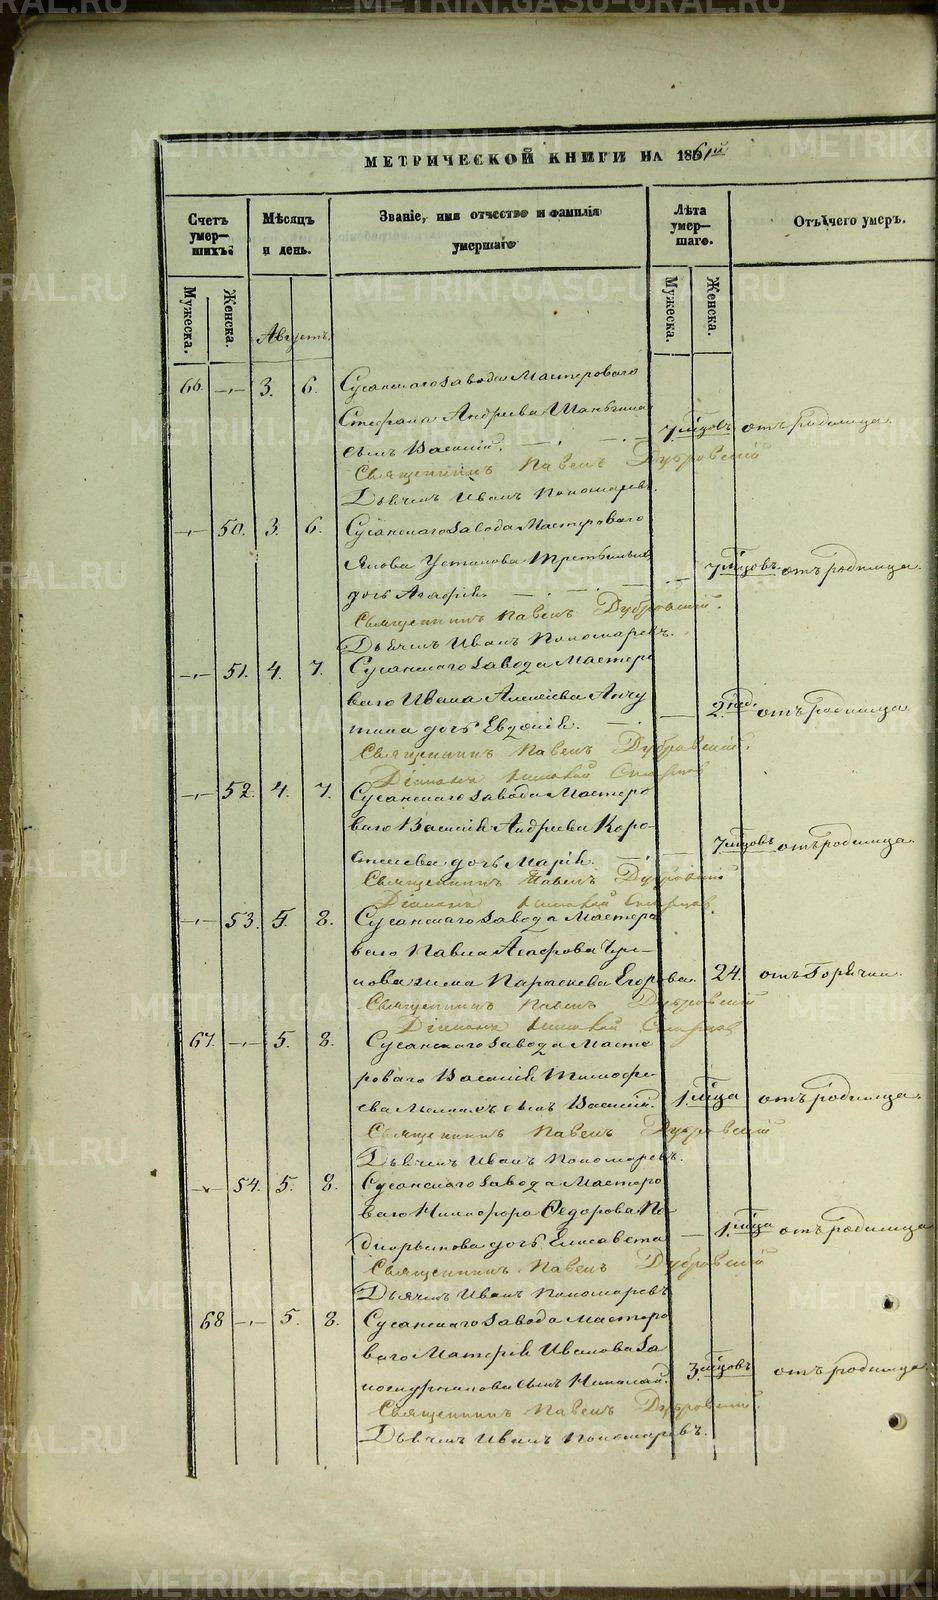 МЕТРИЧЕСКОЙ КНИГИ НА 1861й
Счетъ умер-шихъ:
Мѣсяцъ и день.
Званіе, имя отчество и фамилія умершаго
Лѣта умер-шаго.
Отъ чего умеръ.
Мужеска.
Женска.
Мужеска.
Женска.
Августъ.
66. -,- 3. 6. Сусанскаго завода Мастероваго
Стефана Андреева
сынъ Василій. 7 мцовъ отъ родимца.
Священникъ Павелъ Дубровскій
Дьячекъ Иванъ Пономаревъ.
-,- 50. 3. 6. Сусанскаго завода Мастероваго
Якова Устинова
дочь Агафія. 7 мцовъ. отъ родимца.
Священникъ Павелъ Дубровскій.
Дьячекъ Иванъ Пономаревъ.
-,- 51. 4. 7. Сусанскаго завода Мастеро
ваго Ивана Алексѣева Анчу
тина дочь Евдокія. 2 год. отъ родимца
Священникъ Павелъ Дубровскій.
Діаконъ
-,- 52. 4. 7. Сусанскаго завода Мастеро
ваго Василія Андреева Коро-
стелева дочь Марія. 7 мцовъ отъ родимца.
Священникъ Павелъ Дубровскій
Діаконъ
-,- 53. 5. 8. Сусанскаго завода Мастеро
ваго Павла Агафова
нова жена Параскева Егорова. 24. отъ Горячки.
Священникъ Павелъ Дубровскій
Діаконъ
67. -,- 5. 8. Сусанскаго завода Масте
роваго Василія Тимофе
ева сынъ Василій. 1 мца отъ родимца.
Священникъ Павелъ Дубровскій
Дьячекъ Иванъ Пономаревъ.
54. 5. 8. Сусанскаго завода Мастеро
ваго Никифора Ѳедорова По
дкорытова дочь Елисавета 1 мца отъ родимца
Священникъ Павелъ Дубровскій
Дьячекъ Иванъ Пономаревъ
68 -,- 5. 8. Сусанскаго завода Мастеро
ваго Иванова
сынъ Николай. 3. мцовъ отъ родимца.
Священникъ Павелъ Дубровскій.
Дьячекъ Иванъ Пономаревъ.
METRIKI.GASO-URAL.RU